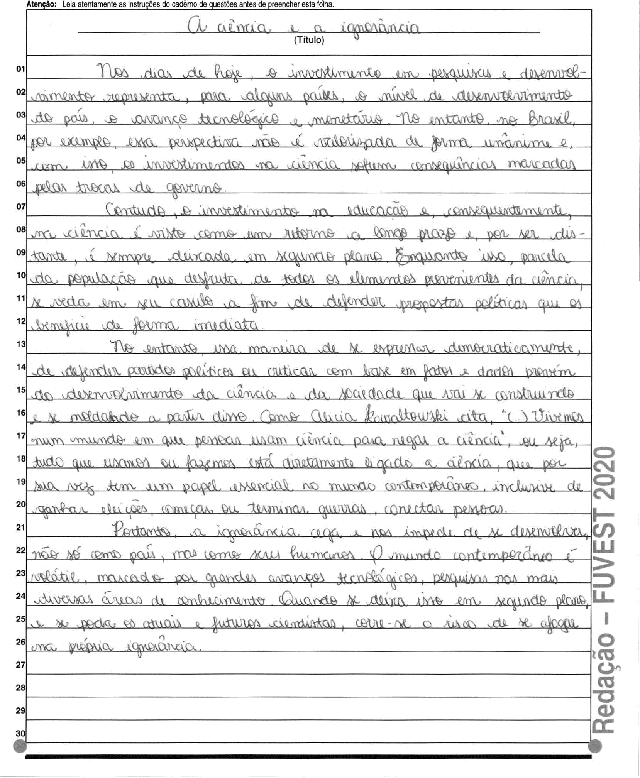 Atenção: Leia atentamente as instruções do caderno de questões antes de preencher esta folha.
A ciência e a ignorância
(Título)
01 Nos dias de hoje, o investimento em pesquisas e desenvol-
02 vimento representa, para alguns países, o nível de desenvolvimento
03 do país, o avanço tecnológico e monetário. No entanto, no Brasil,
04 por exemplo, essa perspectiva não é valorizada de forma unânime e,
05 com isso, os investimentos na ciência sofrem consequências marcadas
06 pelas trocas de governo.
07 Contudo, o investimento na educação e, consequentemente,
08 na ciência é visto como um retorno a longo prazo e, por ser dis-
09 tante, é sempre deixada em segundo plano. Enquanto isso, parcela
10 da população que desfruta de todos os elementos provenientes da ciência,
11 se veda em seu casulo a fim de defender propostas políticas que os
12 beneficie de forma imediata.
13 No entanto, essa maneira de se expressar democraticamente,
14 de defender partidos políticos ou criticar com base em fatos e dados provém
15 do desenvolvimento da ciência e da sociedade que vai se construindo
16 e se moldando a partir disso. Como Alicia Kowaltowski cita, "(...) Vivemos
17 num mundo em que pessoas usam ciência para negar a ciência", ou seja,
18 tudo que usamos ou fazemos está diretamente ligado a ciência, que por
19 sua vez tem um papel essencial no mundo contemporâneo, inclusive de
20 ganhar eleições, começar ou terminar guerras, conectar pessoas.
21 Portanto, a ignorância cega e nos impede de se desenvolver,
22 não só como país, mas como seres humanos. O mundo contemporâneo é
23 volátil, marcado por grandes avanços tecnológicos, pesquisas nas mais
24 diversas áreas de conhecimento. Quando se deixa isso em segundo plano,
25 e se poda os atuais e futuros cientistas, corre-se o risco de se afogar
26 na própria ignorância.
27
28
29
30
Redação – FUVEST 2020